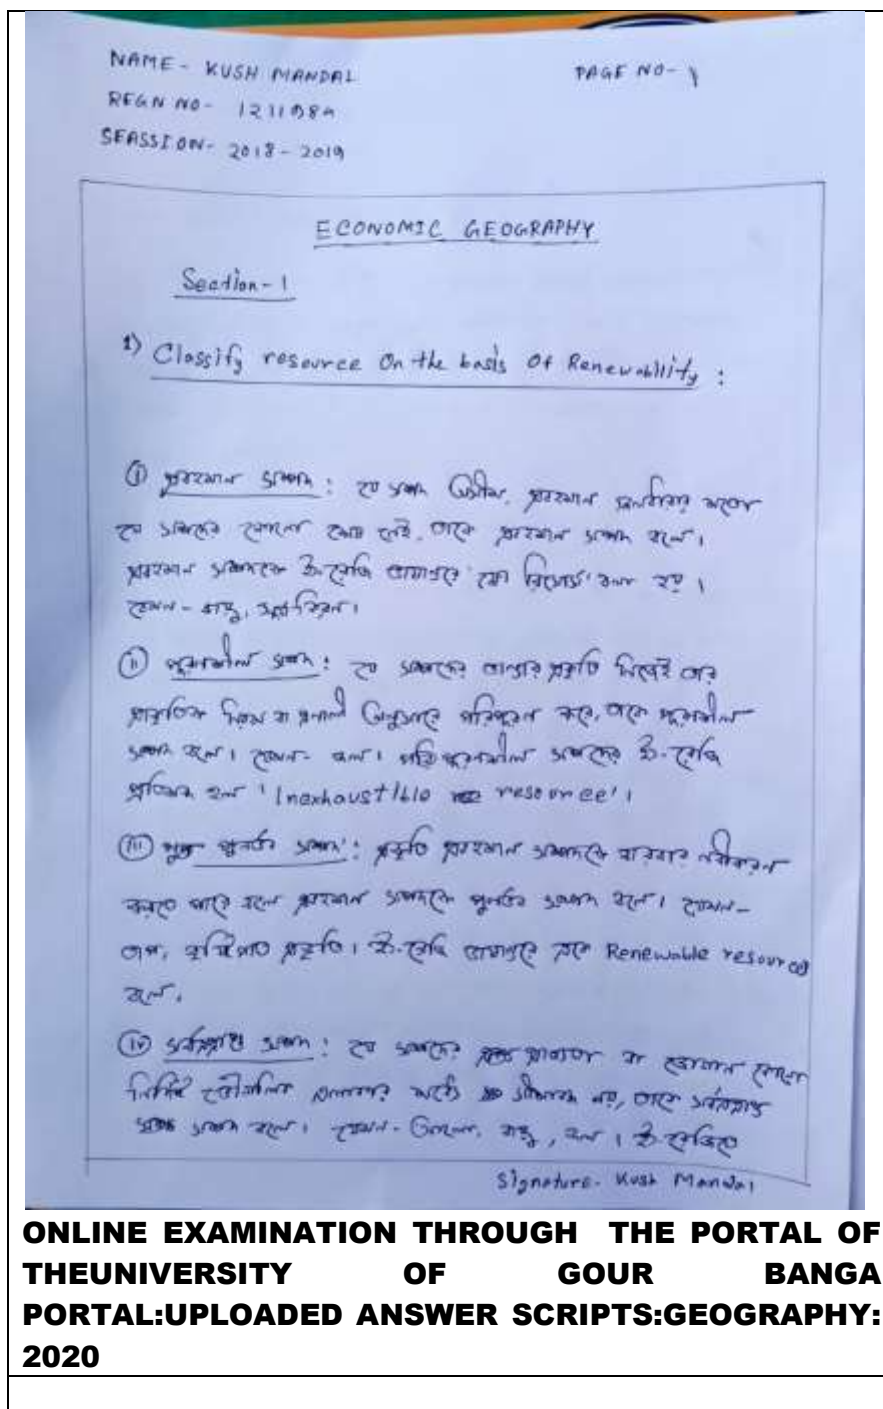 NAME - KUSH MANDAL
PAGE NO - 1
REGN NO -
SEASSION - 2018 - 2019
ECONOMIC GEOGRAPHY
Section - 1
1) Classify resource On the basis Of Renewability :
(i) প্রবহমান সম্পদ : যে সম্পদ অসীম, প্রবহমান মতো
যে সম্পদের কোনো শেষ নেই, তাকে প্রবহমান সম্পদ বলে।
প্রবহমান সম্পদকে ইংরেজি ভাষান্তরে 'ফ্লো রিসোর্স' বলা হয়।
যেমন - বায়ু, সূর্যকিরণ।
(ii) পূরণশীল সম্পদ : যে সম্পদের ভান্ডার প্রকৃতি নিজেই তার
প্রাকৃতিক নিয়ম বা প্রনালী অনুসারে পরিপূরণ করে, তাকে পূরণশীল
সম্পদ বলে। যেমন - জল। পরিপূরণশীল সম্পদের ইংরেজি
প্রতিশব্দ হল 'Inexhaustible resource'।
(iii) পুনর্ভব সম্পদ : প্রকৃতি প্রবহমান সম্পদকে বারবার নবীকরন
করতে পারে বলে প্রবহমান সম্পদকে পুনর্ভব সম্পদ বলে। যেমন -
তাপ, বৃষ্টিপাত প্রভৃতি। ইংরেজি ভাষান্তরে একে Renewable resource
বলে।
(iv) সর্বত্রপ্রাপ্ত সম্পদ : যে সম্পদের প্রাপ্যতা বা যোগান কোনো
নির্দিষ্ট ভৌগলিক এলাকার মধ্যে সীমাবদ্ধ নয়, তাকে সর্বত্রপ্রাপ্ত
সম্পদ বলে। যেমন - আলো, বায়ু, জল। ইংরেজিতে
Signature - Kush Mandal
ONLINE EXAMINATION THROUGH THE PORTAL OF
THEUNIVERSITY OF GOUR BANGA
PORTAL:UPLOADED ANSWER SCRIPTS:GEOGRAPHY:
2020